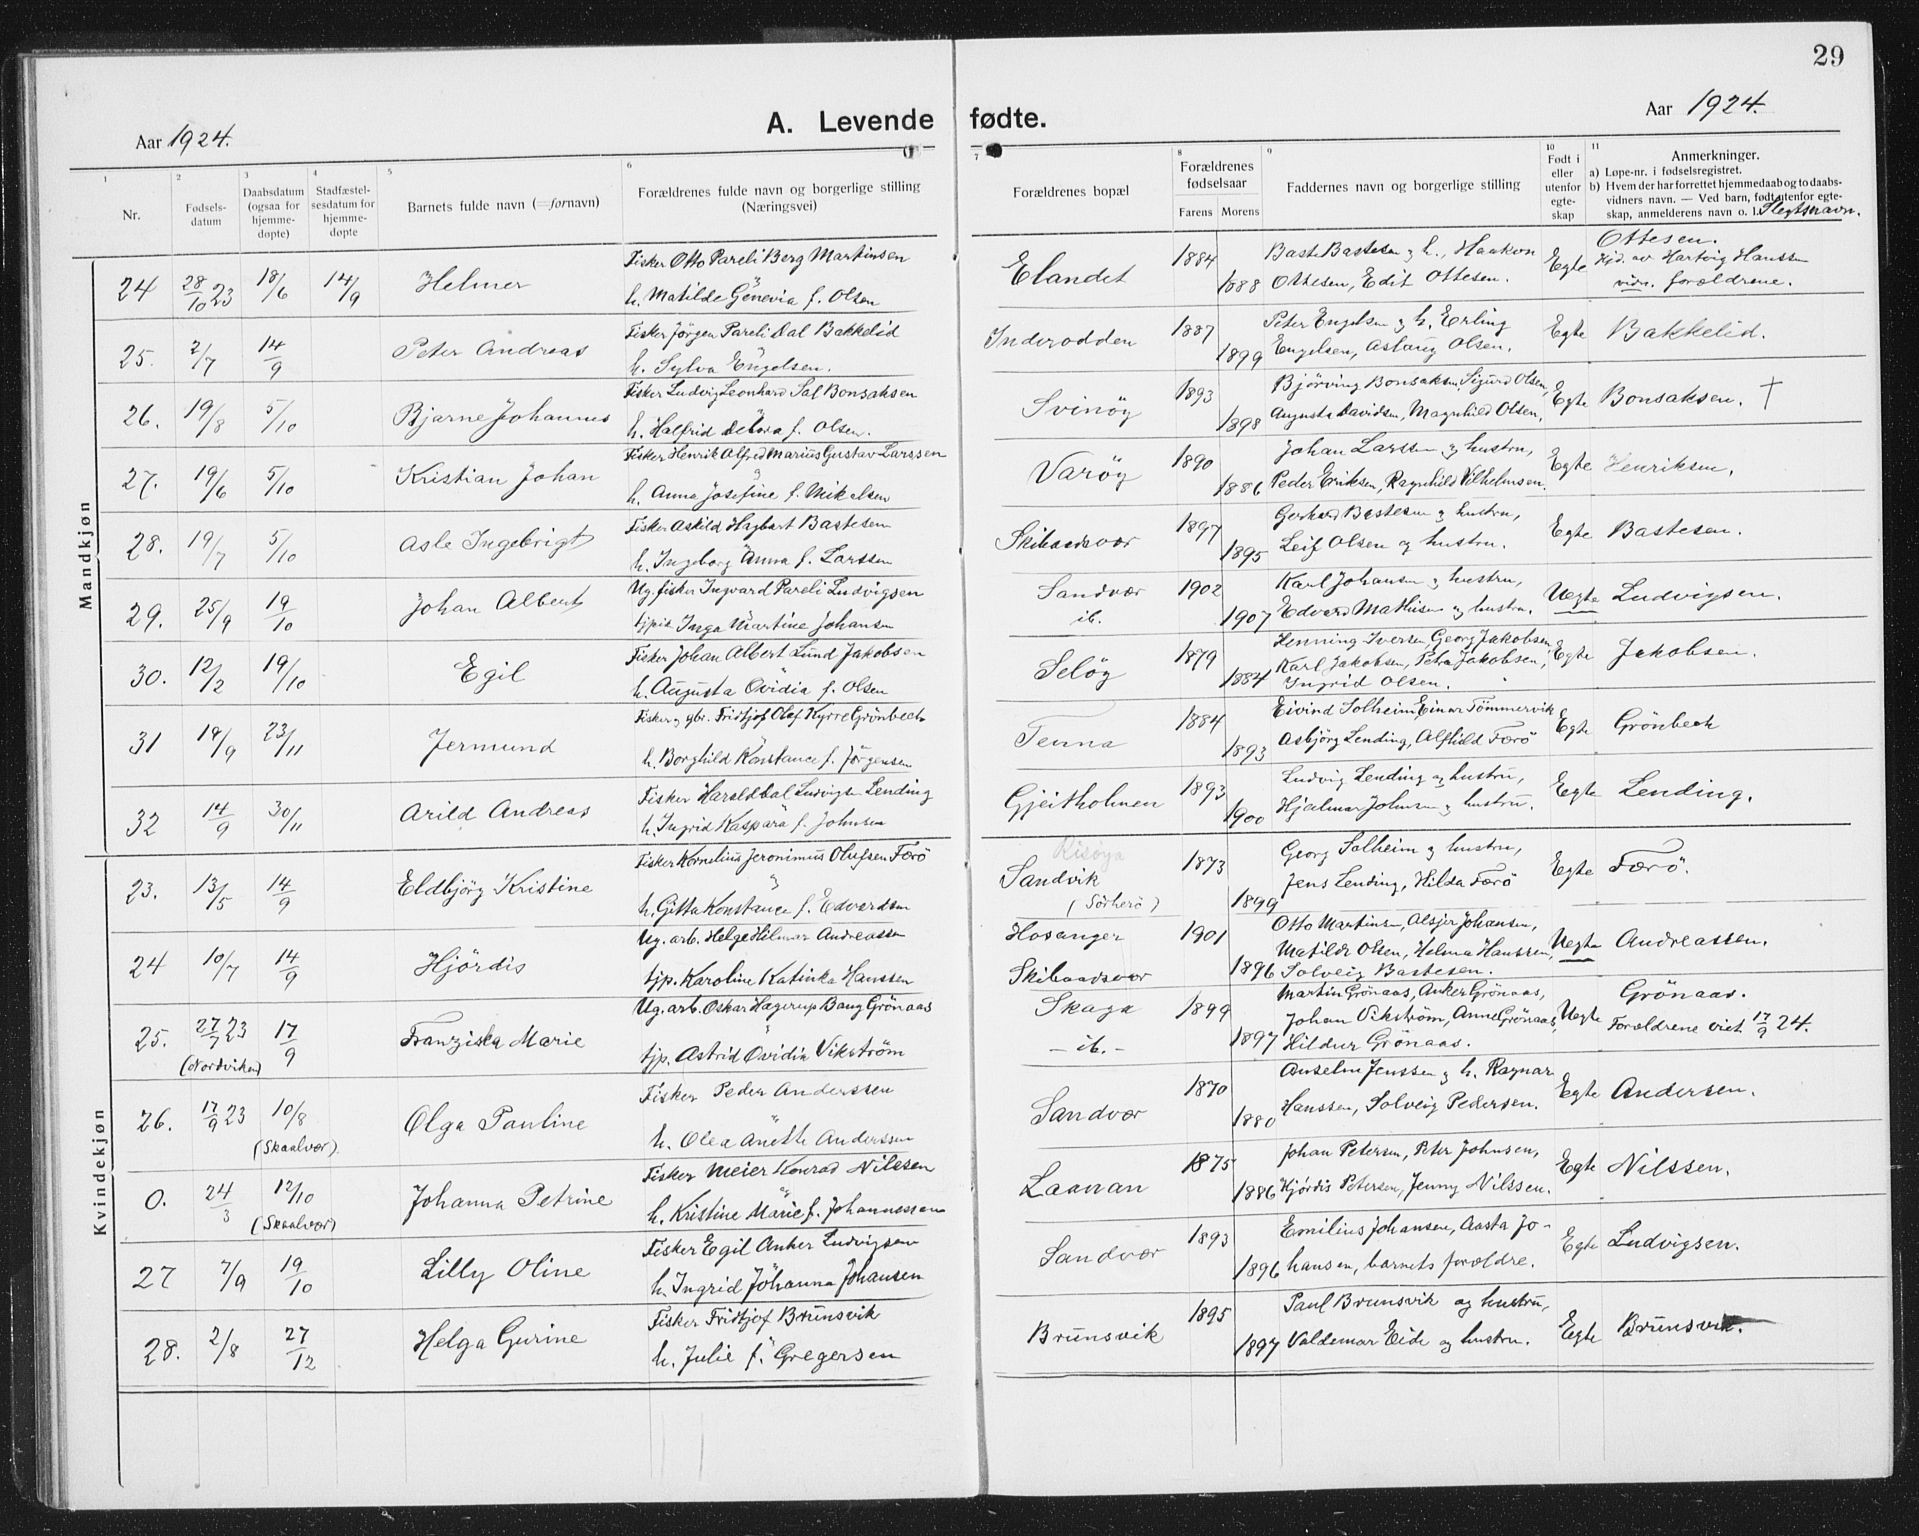 29
Aar 1924.
A. Levende fødte.
Aar 1924.
1 2 3 4 5 6 7 8 9 10 11
Nr.
Fødsels-
datum
Daabsdatum
(ogsaa for
hjemme-
døpte)
Stadfæstel-
sesdatum for
hjemme-
døpte
Barnets fulde navn (=fornavn)
Forældrenes fulde navn og borgerlige stilling
(Næringsvei)
Forældrenes bopæl
Forældrenes
fødselsaar
Farens Morens
Faddernes navn og borgerlige stilling
Født i
eller
utenfor
egte-
skap
Anmerkninger.
a) Løpe-nr. i fødselsregistret.
b) Hvem der har forrettet hjemmedaab og to daabs-
vidners navn. — Ved barn, født utenfor egte-
skap, anmelderens navn o. l. Slegtsnavn.
Mandkjøn
24 28/10 23 18/6 14/9 Helmer
Fisker Otto Pareli Berg Martinsen
h. Matilde Genevia f. Olsen
Elandet 1884 1888
Baste Bastesen og h., Haakon
Ottesen, Edit Ottesen.
Egte
Ottesen.
Hjd. av Hartvig Hanssen
vidn. forældrene.
25. 2/7 14/9 Peter Andreas
Fisker Jørgen Pareli Dal Bakkelid
h. Sylva Engelsen.
Inderodden 1887 1899
Peter Engelsen og h. Erling
Engelsen, Aslaug Olsen.
Egte Bakkelid.
26. 19/8 5/10 Bjarne Johannes
Fisker Ludvig Leonhard Sal Bonsaksen
h. Halfrid Debora f. Olsen.
Svinøy 1893 1898
Bjørving Bonsaksen, Sigurd Olsen,
Augusta Davidsen, Magnhild Olsen,
Egte Bonsaksen. †
27. 19/6 5/10 Kristian Johan
Fisker Henrik Alfred Marius Gustav Larssen
h. Anna Josefine f. Mikalsen
Varøy 1890 1886
Johan Larssen og hustru,
Peder Eriksen, Ragnhild Vilhelmsen.
Egte Henriksen.
28. 19/7 5/10 Asle Ingebrigt
Fisker Askild Hagbart Bastesen
h. Ingeborg Anna f. Larssen
Skibaadsvær 1897 1895
Gerhard Bastesen og hustru,
Leif Olsen og hustru.
Egte Bastesen.
29. 25/9 19/10 Johan Albert
Ug. fisker Ingvard Pareli Ludvigsen
tjpie Inga Martine Johansen
Sandvær
ib.
1902 1907
Karl Johansen og hustru,
Edvard Mathisen og hustru.
Uegte Ludvigsen.
30. 12/2 19/10 Egil
Fisker Johan Albert Lund Jakobsen
h. Augusta Ovidia f. Olsen
Seløy 1879 1884
Henning Iversen, Georg Jakobsen,
Karl Jakobsen, Petra Jakobsen,
Ingrid Olsen.
Egte Jakobsen.
31 18/9 23/11 Jermund
Fisker og gbr. Fridtjof Olaf Kyrre Grønbech
h. Borghild Konstance f. Jørgensen
Tenna 1884 1893
Eivind Solheim, Einar Tømmervik
Asbjørg Lending, Alfhild Færø
Egte Grønbech
32 14/9 30/11 Arild Andreas
Fisker Harald Dal Ludvigsen Lending
h. Ingrid Kaspara f. Johnsen
Gjeitholmen 1893 1900
Ludvig Lending og hustru,
Hjalmar Johnsen og hustru.
Egte Lending.
Kvindekjøn
23. 13/5 14/9 Eldbjørg Kristine
Fisker Kornelius Jeronimus Olufsen Færø
h. Gitta Konstance f. Edvardsen
Risøya
Sandvik
(Sørherø)
1873 1899
Georg Solheim og hustru,
Jens Lending, Hilda Færø
Egte Færø.
24 10/7 14/9 Hjørdis
Ug. arb. Helge Hilmar Andreassen
tjp. Karoline Katinka Hanssen
Hosanger
Skibaadsvær
1901 1896
Otto Martinsen, Alsjer Johansen,
Matilde Olsen, Helma Hanssen,
Solveig Bastesen.
Uegte Andreassen.
25. 27/7 23 17/9 Franziska Marie
(Nordviken)
Ug. arb. Oskar Hagerup Bang Grönaas
tjp. Astrid Ovidia Vikström
Skaga
- ib. -
1899 1897
Martin Grönaas, Anker Grönaas,
Johan Vikström, Anne Grönaas,
Hildur Grönaas.
Uegte
Grönaas.
Forældrene viet 17/9 24.
26. 17/9 23 10/8 Olga Pauline
(Skaalvær)
Fisker Peder Anderssen
h. Olea Anette Anderssen
Sandvær 1870 1880
Anselm Jenssen og h. Ragnar
Hanssen, Solveig Pedersen.
Egte Andersen.
0. 24/3 12/10 Johanna Petrine
(Skaalvær)
Fisker Meier Konrad Nilssen
h. Kristine Marie f. Johannessen
Laanan 1875 1886
Johan Petersen, Peter Johnsen,
Hjørdis Petersen, Jenny Nilssen.
Egte Nilssen.
27 7/9 19/10 Lilly Oline
Fisker Egil Anker Ludvigsen
h. Ingrid Johanna Johansen
Sandvær 1893 1896
Emilius Johansen, Aasta Jo-
hansen, barnets forældre.
Egte Ludvigsen.
28. 2/8 27/12 Helga Gurine
Fisker Fridtjof Brunsvik
h. Julie f. Gregersen
Brunsvik 1895 1897
Paul Brunsvik og hustru,
Valdemar Eide og hustru.
Egte Brunsvik.